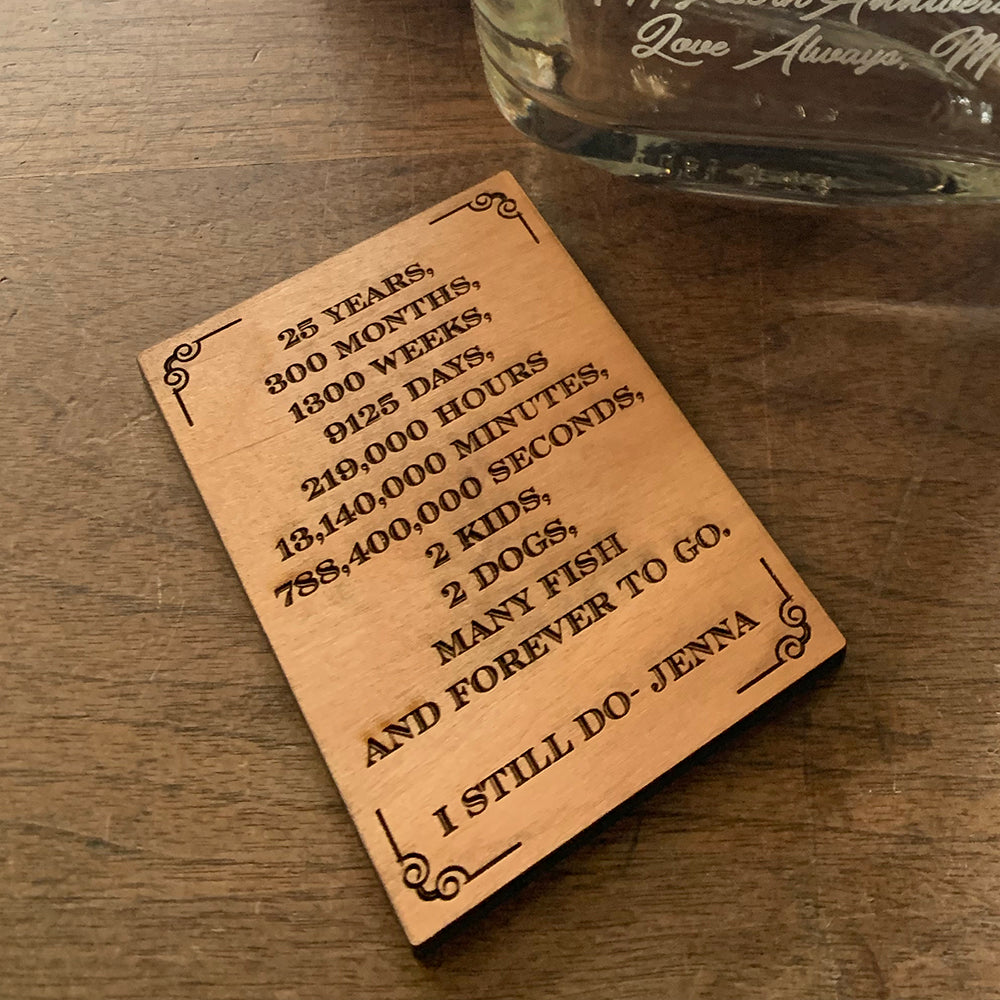 Love Always,
25 YEARS,
300 MONTHS,
1300 WEEKS,
9125 DAYS,
219,000 HOURS
13,140,000 MINUTES,
788,400,000 SECONDS,
2 KIDS,
2 DOGS,
MANY FISH
AND FOREVER TO GO.
I STILL DO- JENNA